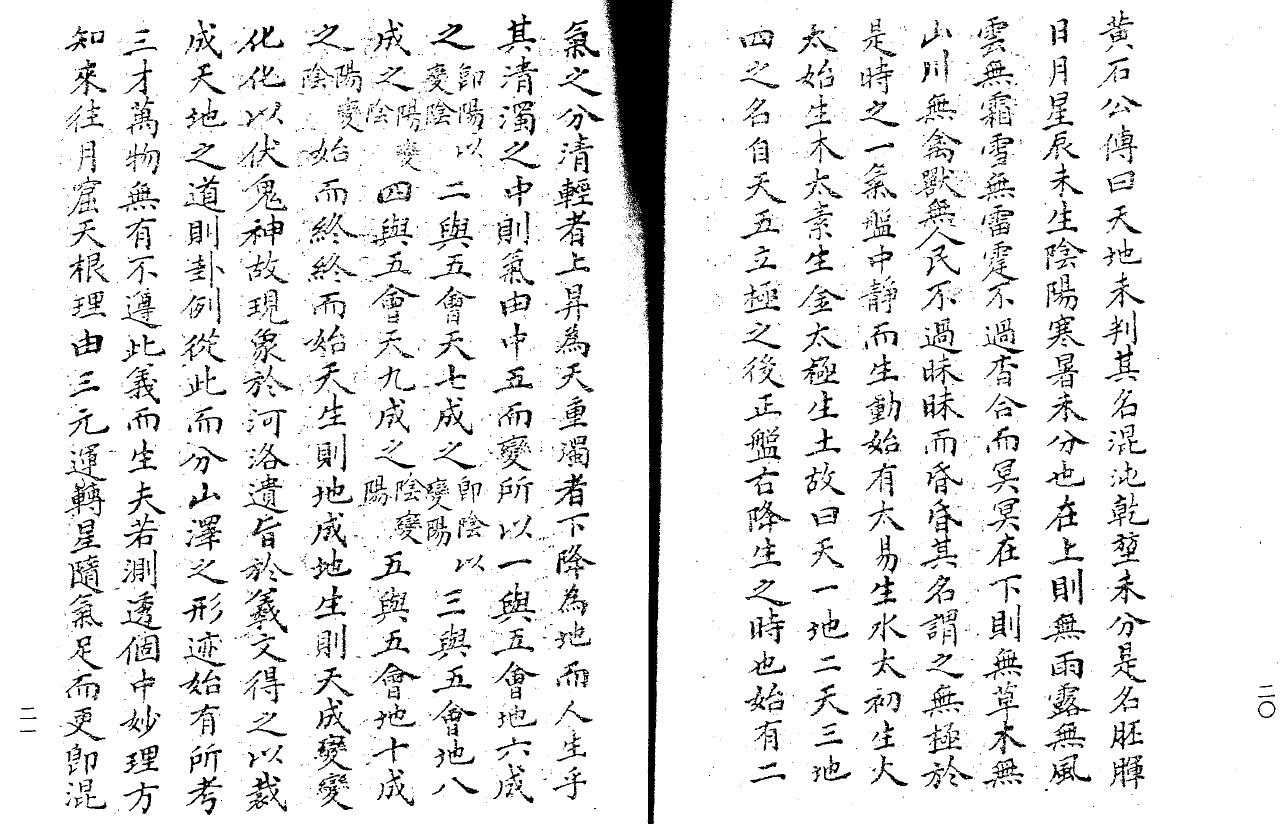 黃石公傳曰天地未判其名混沌乾堃未分是名胚腪
日月星辰未生陰陽寒暑未分也在上則無雨露無風
雲無霜雪無雷霆不過杳合而冥冥在下則無草木無
山川無禽獸無人民不過昧昧而昏昏其名謂之無極於
是時之一氣盤中靜而生動始有太易生水太初生火
太始生木太素生金太極生土故曰天一地二天三地
四之名自天五立極之後正盤右降生之時也始有二
二〇
氣之分清輕者上昇為天重濁者下降為地而人生乎
其清濁之中則氣由中五而變所以一與五會地六成
之即陽以變陰二與五會天七成之即陰以變陽三與五會地八
成之陽變陰四與五會天九成之陰變陽五與五會地十成
之陽變陰始而終終而始天生則地成地生則天成變變
化化以伏鬼神故現象於河洛遺旨於羲文得之以裁
成天地之道則卦例從此而分山澤之形迹始有所考
三才萬物無有不遵此義而生夫若測透個中妙理方
知來往月窟天根理由三元運轉星隨氣足而更即混
二一